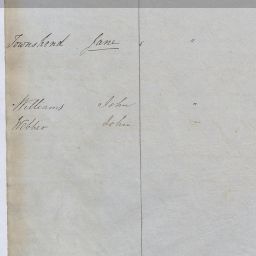 Townshend Jane "
Williams John "
Webber John "